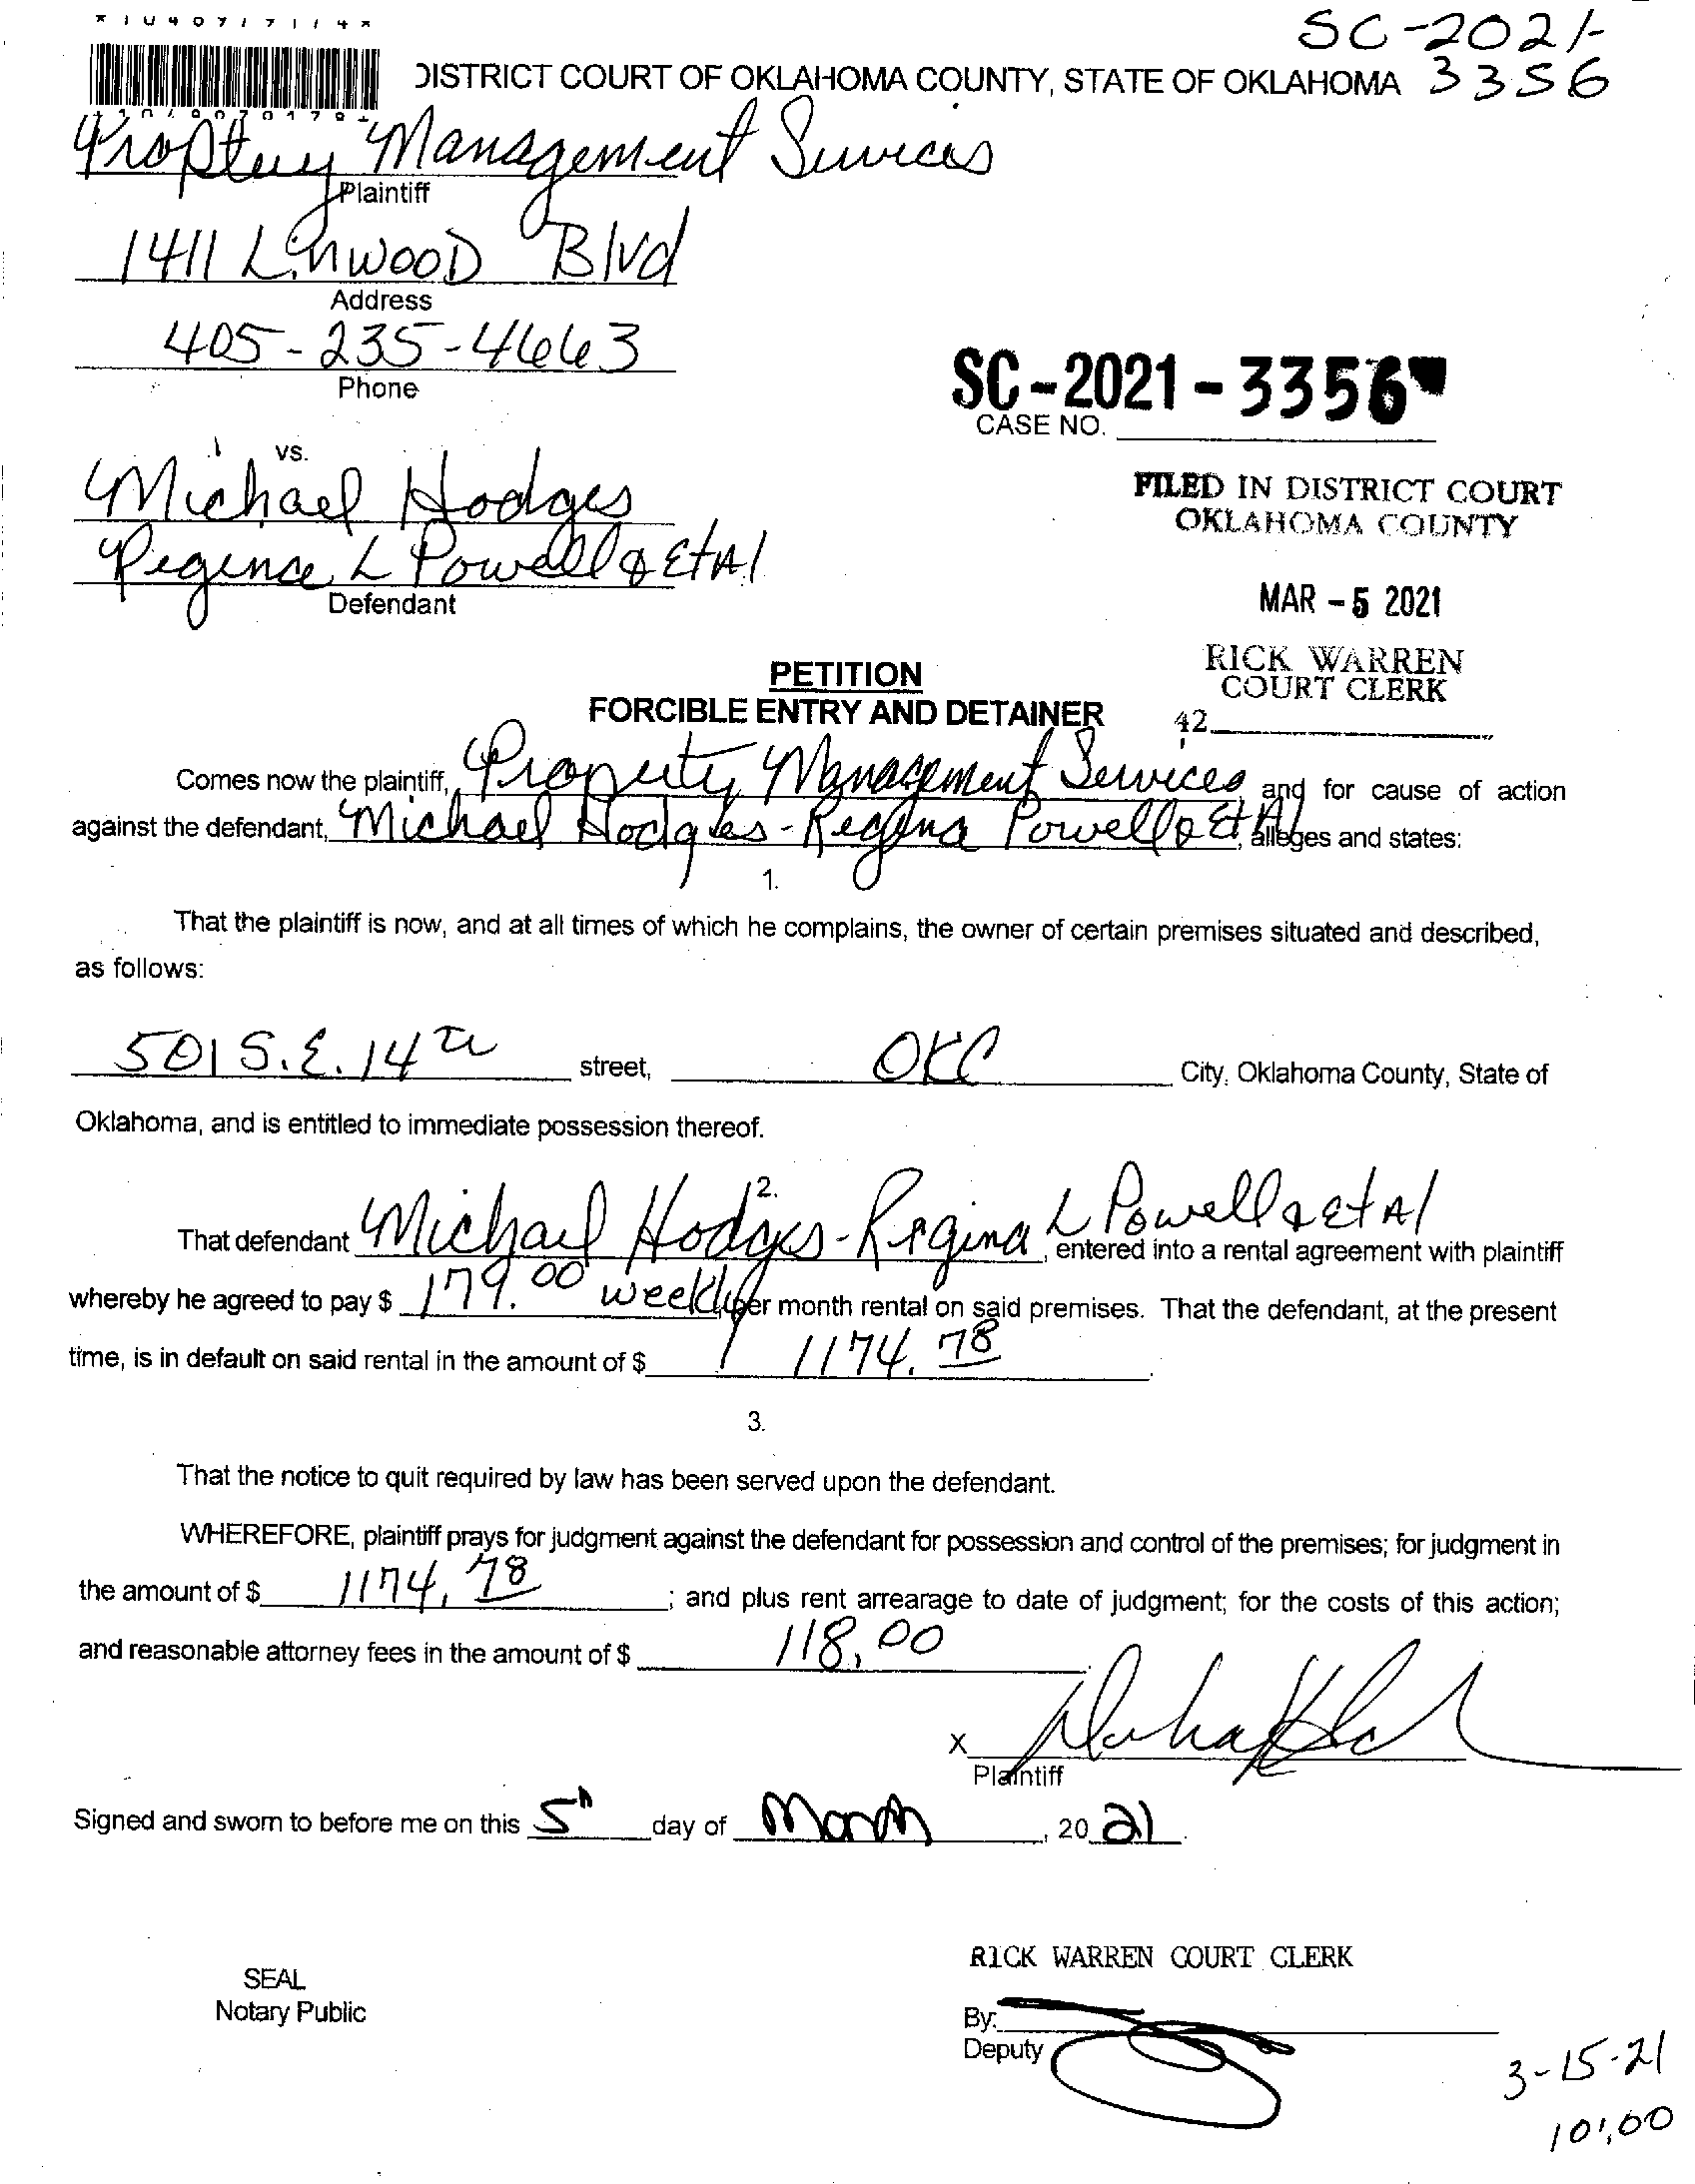 SC-2021-
3356
DISTRICT COURT OF OKLAHOMA COUNTY, STATE OF OKLAHOMA
Proptery Management Services
Plaintiff
1411 Linwood Blvd
Address
405-235-4663
Phone
SC-2021-3356
CASE NO.
vs.
Michael Hodges
Regina L Powell & Et Al
Defendant
FILED IN DISTRICT COURT
OKLAHOMA COUNTY
MAR -5 2021
RICK WARREN
COURT CLERK
42
PETITION
FORCIBLE ENTRY AND DETAINER
Comes now the plaintiff, Property Management Services and for cause of action
against the defendant, Michael Hodges-Regina Powell & Et Al, alleges and states:
1.
That the plaintiff is now, and at all times of which he complains, the owner of certain premises situated and described,
as follows:
501 S.E. 14th street, OKC City, Oklahoma County, State of
Oklahoma, and is entitled to immediate possession thereof.
2.
That defendant Michael Hodges-Regina L Powell & Et Al, entered into a rental agreement with plaintiff
whereby he agreed to pay $ 179.00 weekly per month rental on said premises. That the defendant, at the present
time, is in default on said rental in the amount of $ 1174.78.
3.
That the notice to quit required by law has been served upon the defendant.
WHEREFORE, plaintiff prays for judgment against the defendant for possession and control of the premises; for judgment in
the amount of $ 1174.78; and plus rent arrearage to date of judgment; for the costs of this action;
and reasonable attorney fees in the amount of $ 118.00.
X
Plaintiff
Signed and sworn to before me on this 5th day of March, 2021.
RICK WARREN COURT CLERK
SEAL
Notary Public
By:
Deputy
3-15-21
10:00